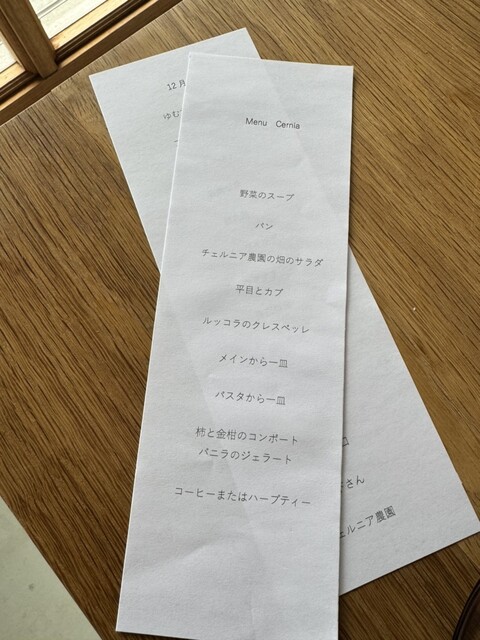 12月
ゆむ
Menu Cernia
野菜のスープ
パン
チェルニア農園の畑のサラダ
平目とカブ
ルッコラのクレスペッレ
メインから一皿
パスタから一皿
柿と金柑のコンポート
バニラのジェラート
コーヒーまたはハーブティー
さん
ェルニア農園